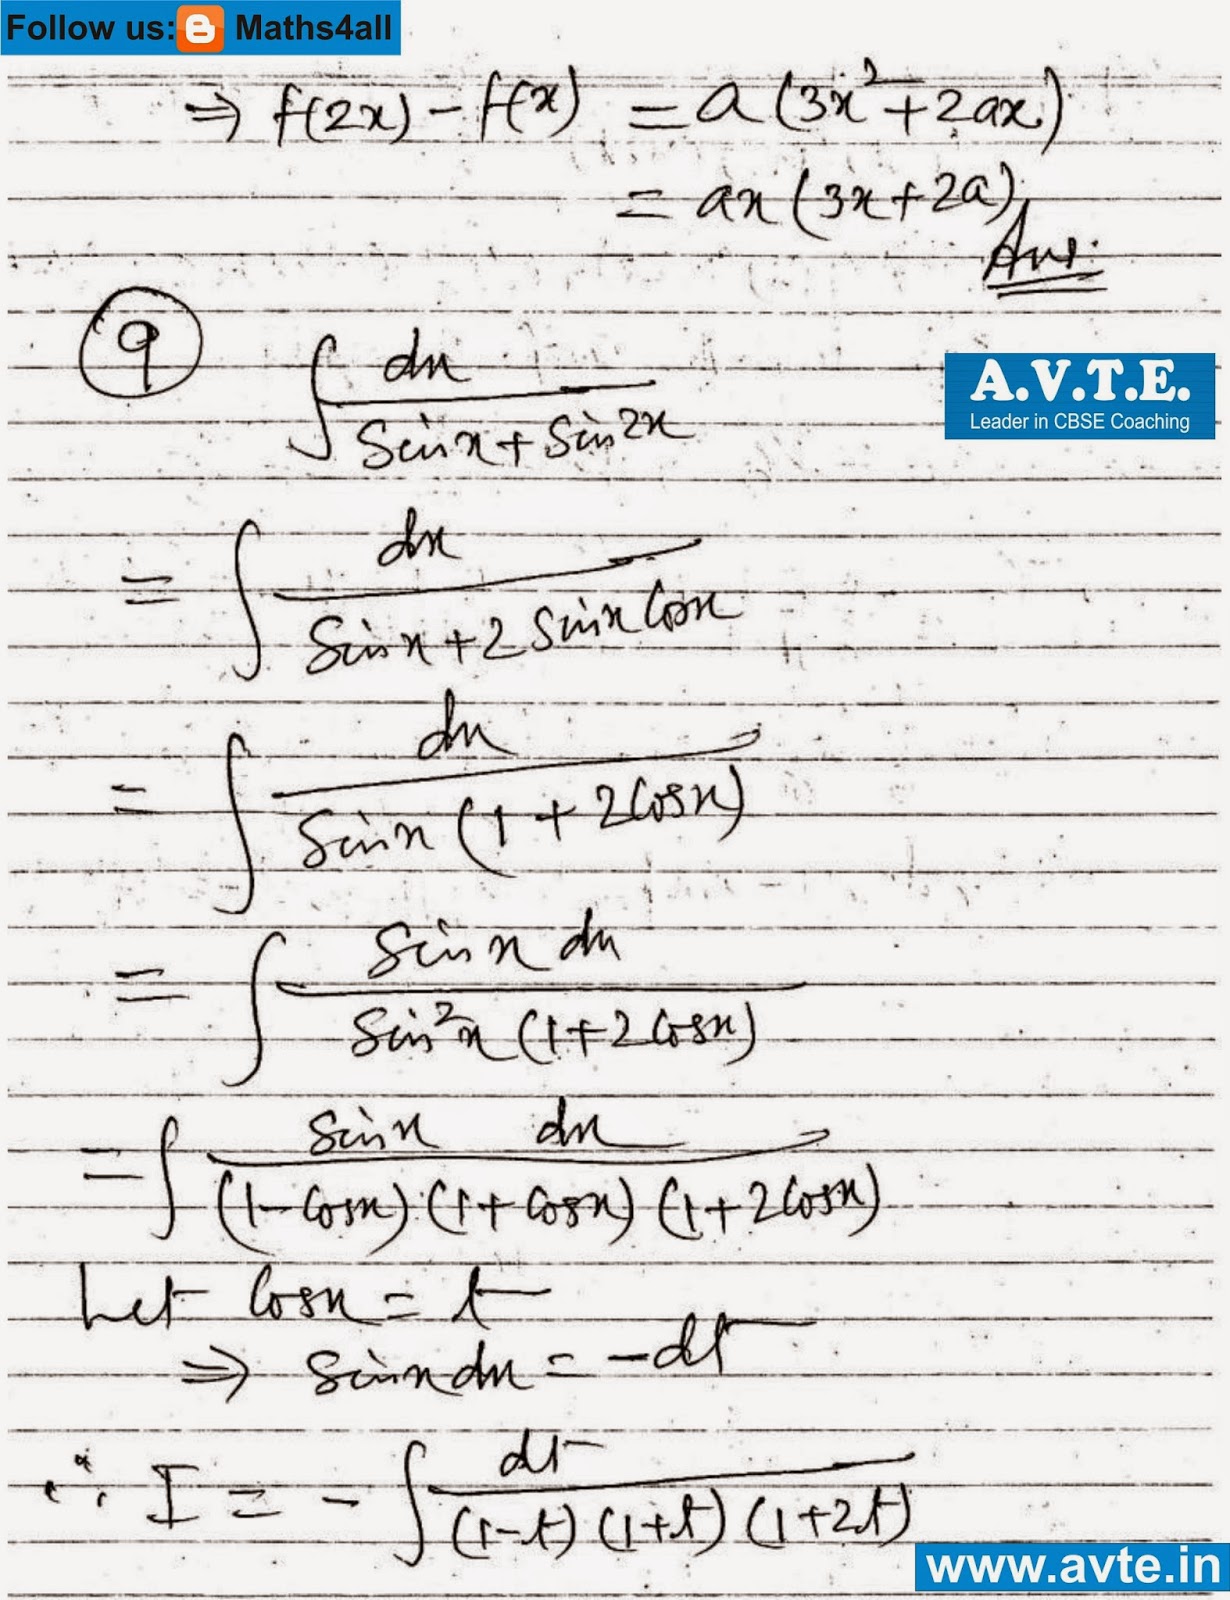 Follow us: B Maths4all
⇒ f(2x) - f(x) = a(3x² + 2ax)
= ax(3x + 2a)
Ans.
9
∫ dx / (Sin x + Sin 2x)
A.V.T.E.
Leader in CBSE Coaching
= ∫ dx / (Sin x + 2 Sin x Cos x)
= ∫ dx / (Sin x (1 + 2 Cos x))
= ∫ Sin x dx / (Sin² x (1 + 2 Cos x))
= ∫ Sin x dx / ((1 - Cos x) (1 + Cos x) (1 + 2 Cos x))
Let Cos x = t
⇒ Sin x dx = -dt
∴ I = - ∫ dt / ((1 - t) (1 + t) (1 + 2t))
www.avte.in